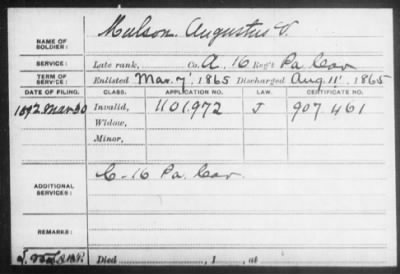 NAME OF SOLDIER: Mulson, Augustus V.
SERVICE: Late rank, Co. A, 16 Reg't Pa Cav
TERM OF SERVICE: Enlisted Mar. 7, 1865 Discharged Aug. 11, 1865
DATE OF FILING. CLASS. APPLICATION NO. LAW. CERTIFICATE NO.
1892 Mar 30 Invalid, 1101,972 J 907,461
Widow,
Minor,
ADDITIONAL SERVICES: C-16 Pa Cav.
REMARKS:
Died , 1 , at